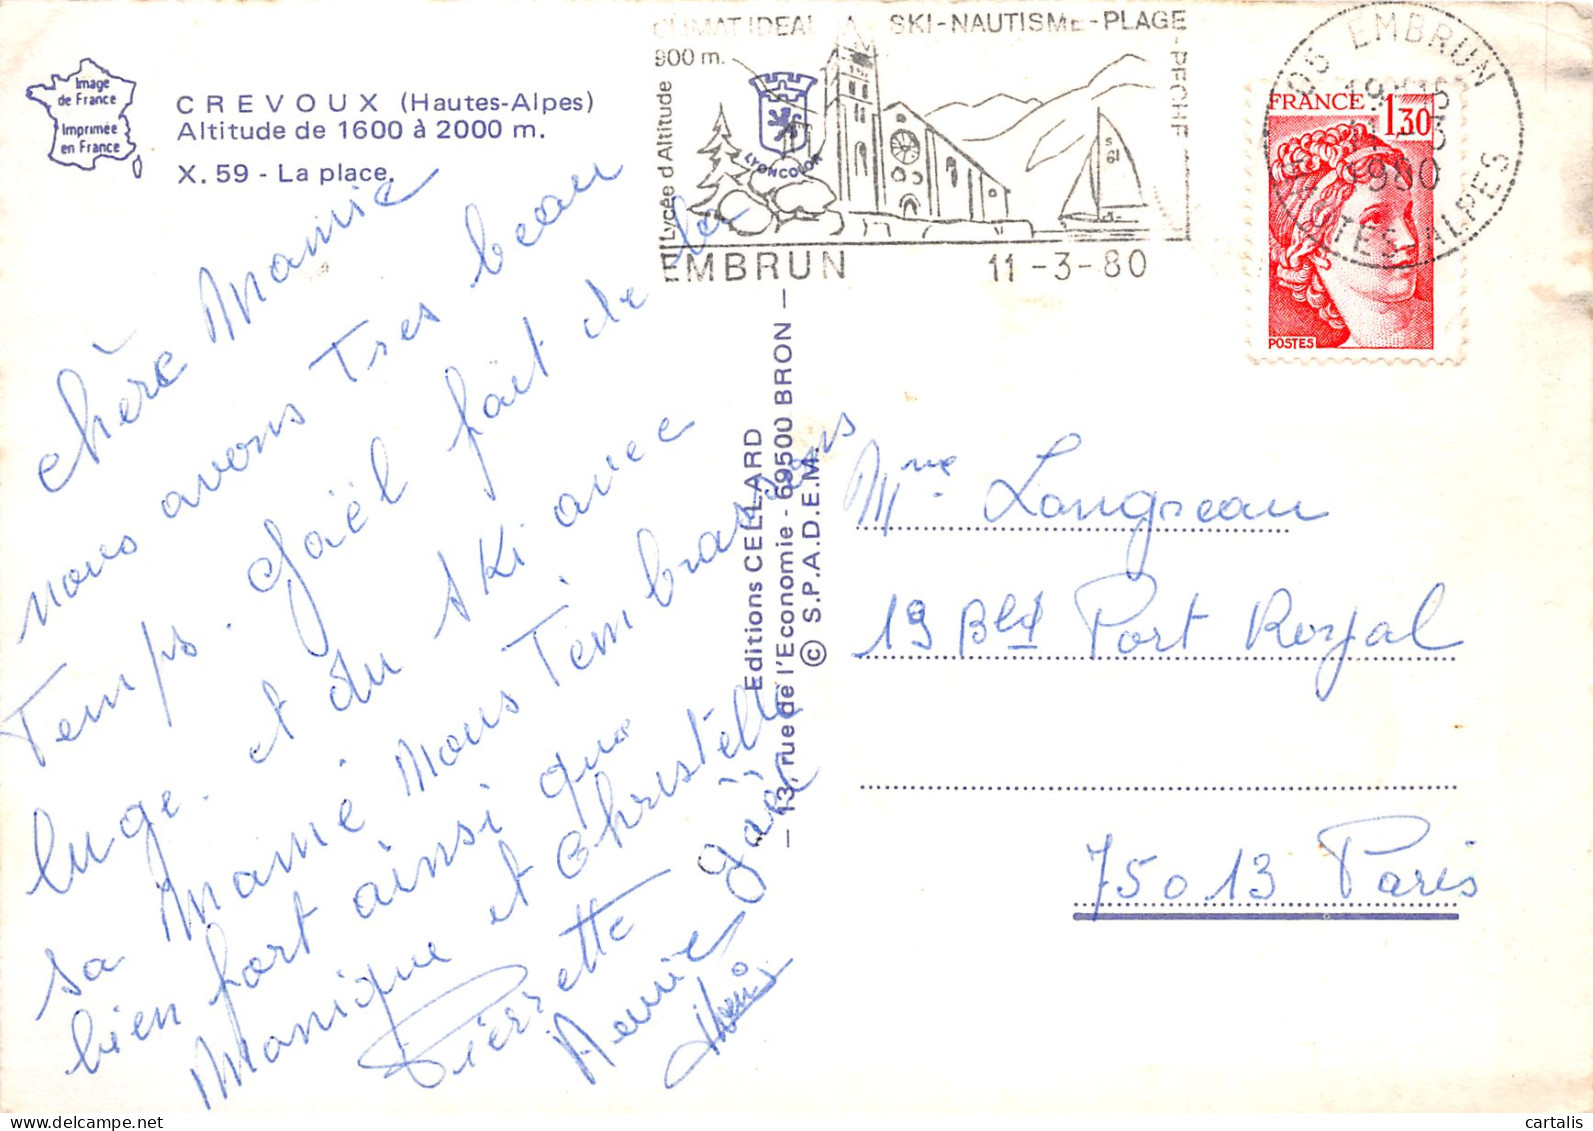 Image
de France
Imprimée
en France
CREVOUX (Hautes-Alpes)
Altitude de 1600 à 2000 m.
X. 59 - La place.
CLIMAT IDEAL SKI-NAUTISME-PLAGE
-PECHE
900 m.
Lycée d'Altitude
LYONCOLOR
S
61
EMBRUN 11-3-80
05 EMBRUN
HAUTES-ALPES
1980
FRANCE 1,30
POSTES
chère Mamie
nous avons Très beau
Temps. Gaël fait de la
luge. et du ski avec
sa Mamé. Nous T'embrassons
bien fort ainsi que
Monique et Christelle
Pierrette Gaël
Editions CELLARD
— 13, rue de l'Economie - 69500 BRON —
© S.P.A.D.E.M.
Mme Langreau
19 Bld Port Royal
75013 Paris
cartalis